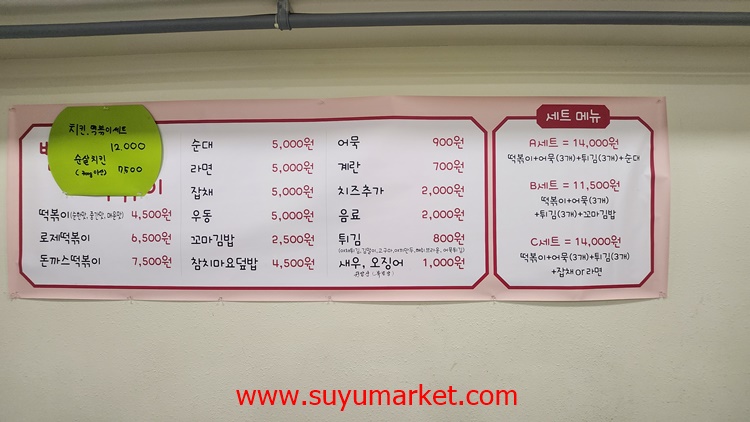 치킨, 떡볶이세트
12.000
순살치킨
7.500
떡볶이(순한맛, 중간맛, 매운맛) 4,500원
로제떡볶이 6,500원
돈까스떡볶이 7,500원
순대 5,000원
라면 5,000원
잡채 5,000원
우동 5,000원
꼬마김밥 2,500원
참치마요덮밥 4,500원
어묵 900원
계란 700원
치즈추가 2,000원
음료 2,000원
튀김 800원
새우, 오징어 1,000원
세트 메뉴
A세트 = 14,000원
떡볶이+어묵(3개)+튀김(3개)+순대
B세트 = 11,500원
떡볶이+어묵(3개)
+튀김(3개)+꼬마김밥
C세트 = 14,000원
떡볶이+어묵(3개)+튀김(3개)
+잡채or라면
www.suyumarket.com